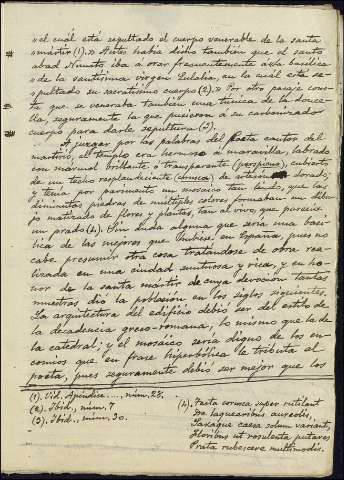 »el cuál está sepultado el cuerpo venerable de la santa
»mártir (1).» Antes había dicho también que el santo
abad Nuncto iba á orar frecuentemente á «la basílica
»de la santísima virgen Eulalia, en la cuál está se-
»pultado su sacratísimo cuerpo (2).» Por otro pasaje cons-
ta que se veneraba también una túnica de la donce-
lla, seguramente la que pusieron á su carbonizador
cuerpo para darle sepultura (3).
A juzgar por las palabras del poeta cantor del
martirio, el templo era hermoso á maravilla, labrado
con mármol brillante y transparente (perspicuo), cubierto
de un techo resplandeciente (corusca) de artesón dorado;
y tenía por pavimento un mosaico tan lindo, que las
diminutas piedras de múltiples colores formaban un dibu-
jo matizado de flores y plantas, tan al vivo, que parecía
un prado (4). Sin duda alguna que sería una basí-
lica de las mejores que hubiese en España, pues no
cabe presumir otra cosa tratándose de obra rea-
lizada en una ciudad suntuosa y rica, y en ho-
nor de la santa mártir de cuya devoción tantas
muestras dio la población en los siglos siguientes.
La arquitectura del edificio debió ser del estilo de
la decadencia greco-romana, lo mismo que la de
la catedral; y el mosaico sería digno de los en-
comios que en frase hiperbólica le tributa el
poeta, pues seguramente debió ser mejor que los
(1). Vid. Apéndice..., núm. 28.
(2). Ibid., núm. 7
(3). Ibid., núm. 30.
(4). Tecta corusca super rutilant
De laquearibus aureolis,
Saxaque caesa solum variant,
Floribus ut rosulenta putares
Prata rubescere multimodis.